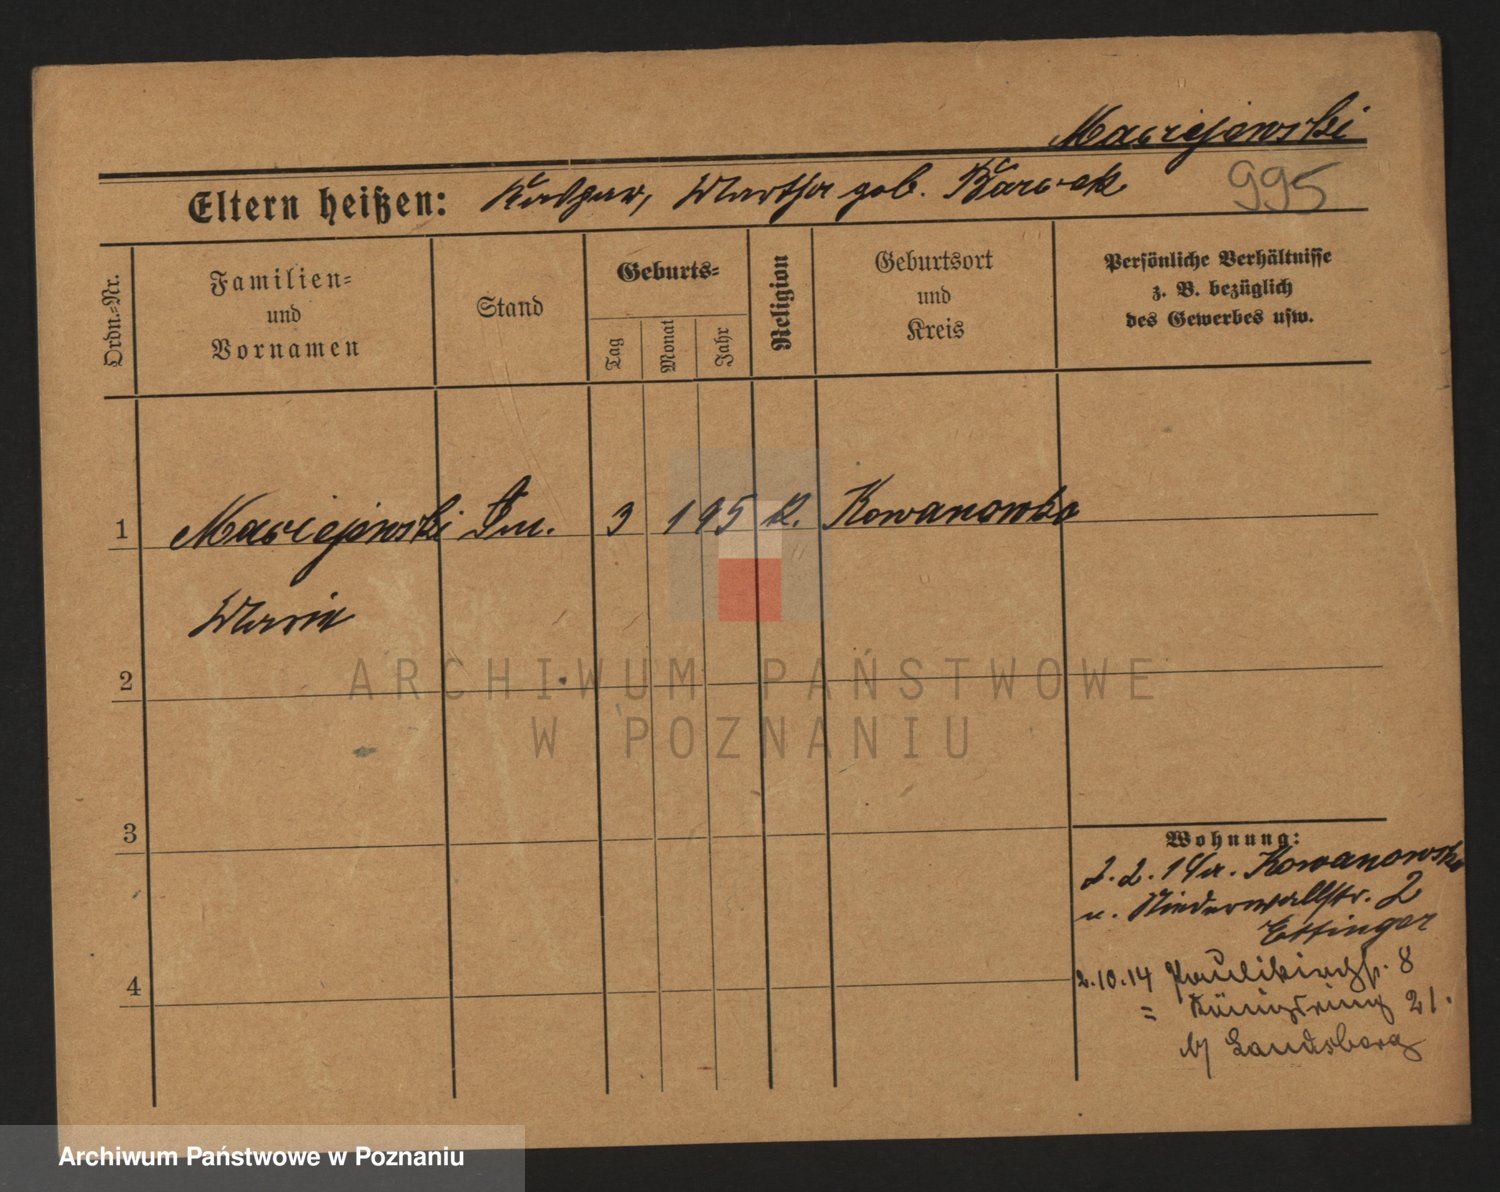 Maciejewski
Eltern heißen: Kaspar, Martha geb.
995
Ordn.-Nr.
Familien-
und
Vornamen
Stand
Geburts-
Tag
Monat
Jahr
Religion
Geburtsort
und
Kreis
Persönliche Verhältnisse
z. B. bezüglich
des Gewerbes usw.
1 Maciejewski 3 1 95 K. Kowanowko
Marie
2
3
4
Wohnung:
2.2.14 Kowanowko
n. Niederwallstr. 2
Ettinger
2.10.14 Paulikirchstr. 8
= Königsring 21.
b/ Landsberg
ARCHIWUM PAŃSTWOWE
W POZNANIU
Archiwum Państwowe w Poznaniu